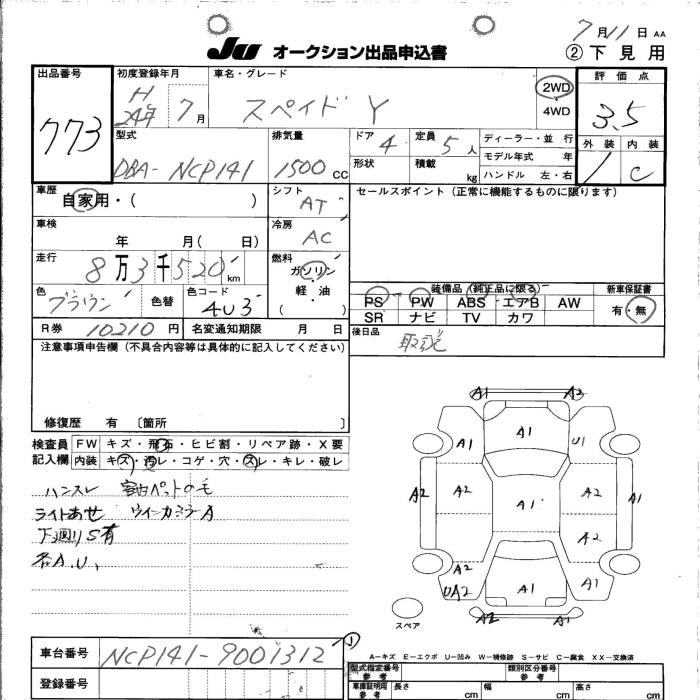 7月11日 AA
JU オークション出品申込書 ②下見用
出品番号 初度登録年月 車名・グレード 評価点
773 H24年 7月 スペイド Y 2WD 4WD 3.5
型式 排気量 ドア 4 定員 5人 ディーラー・並行 外装 内装
DBA-NCP141 1500CC 形状 積載 kg モデル年式 年 1 C
ハンドル 左・右
車歴 自家用・( ) シフト AT セールスポイント(正常に機能するものに限ります)
車検 年 月( 日) 冷房 AC
走行 8万3千520km 燃料 ガソリン・軽油・( )
装備品(純正品に限る) 新車保証書
色 ブラウン 色替 色コード 4U3
PS PW ABS エアB AW 有・無
SR ナビ TV カワ
R券 10210円 名変通知期限 月 日 後日品 取説
注意事項申告欄(不具合内容等は具体的に記入してください)
修復歴 有 〔箇所 〕
検査員記入欄 FW キズ・飛石・ヒビ割・リペア跡・X要
内装 キズ・汚レ・コゲ・穴・スレ・キレ・破レ
ハンスレ 室内ペットの毛
ライトあせ ウインカミラーA
下廻りS有
各A.U.
A1 A2
A1 A1 U1
A2 A2 A1 A2 A1
A2
A2 A1
UA2 A1
A2 A1
スペア
①
A-キズ E-エクボ U-凹み W-補修跡 S-サビ C-腐食 XX-交換済
車台番号 NCP141-9001312
型式指定番号 参考 類別区分番号 参考
登録番号 車庫証明用 参考 長さ cm 幅 cm 高さ cm